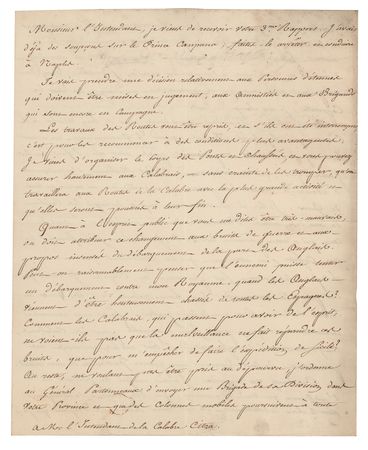 Monsieur l'Intendant, je viens de recevoir votre 3me Rapport. J'avais
déjà des soupçons sur le Prince, faites le arrêter et conduire
à Naples.
Je vais prendre une décision relativement aux Personnes détenues
qui doivent être mises en jugement, aux Amnistiés et aux Brigands
qui sont encore en Campagne.
Les travaux des Routes vont être repris, et s'ils ont été interrompus
c'est pour les recommencer à des conditions plus avantageuses.
Je viens d'organiser le corps des Ponts et Chaussées, et vous pouvez
assurer hautement aux Calabrais, sans crainte de les tromper, qu'on
travaillera aux Routes de la Calabre avec la plus grande activité et
qu'elles seront poussées à leur fin.
Quant à l'esprit public que vous me dites être très mauvais,
on doit attribuer ce changement aux bruits de guerre et aux
propos insensés de débarquement de la part des Anglais.
Peut-on raisonnablement penser que l'ennemi puisse tenter
un débarquement contre mon Royaume, quand les Anglais
viennent d'être honteusement chassés de toutes les Espagnes?
Comment les Calabrais, qui passent pour avoir de l'esprit,
ne voient-ils pas que la malveillance ne fait répandre ces
bruits, que pour m'empêcher de faire l'expédition de Sicile?
Au reste, ne voulant pas être pris au dépourvu, j'ordonne
au Général Partouneaux d'envoyer une Brigade de sa Division, dans
votre Province et que des Colonnes mobiles poursuivent à toute
à Mr. l'Intendant de la Calabre Citra.